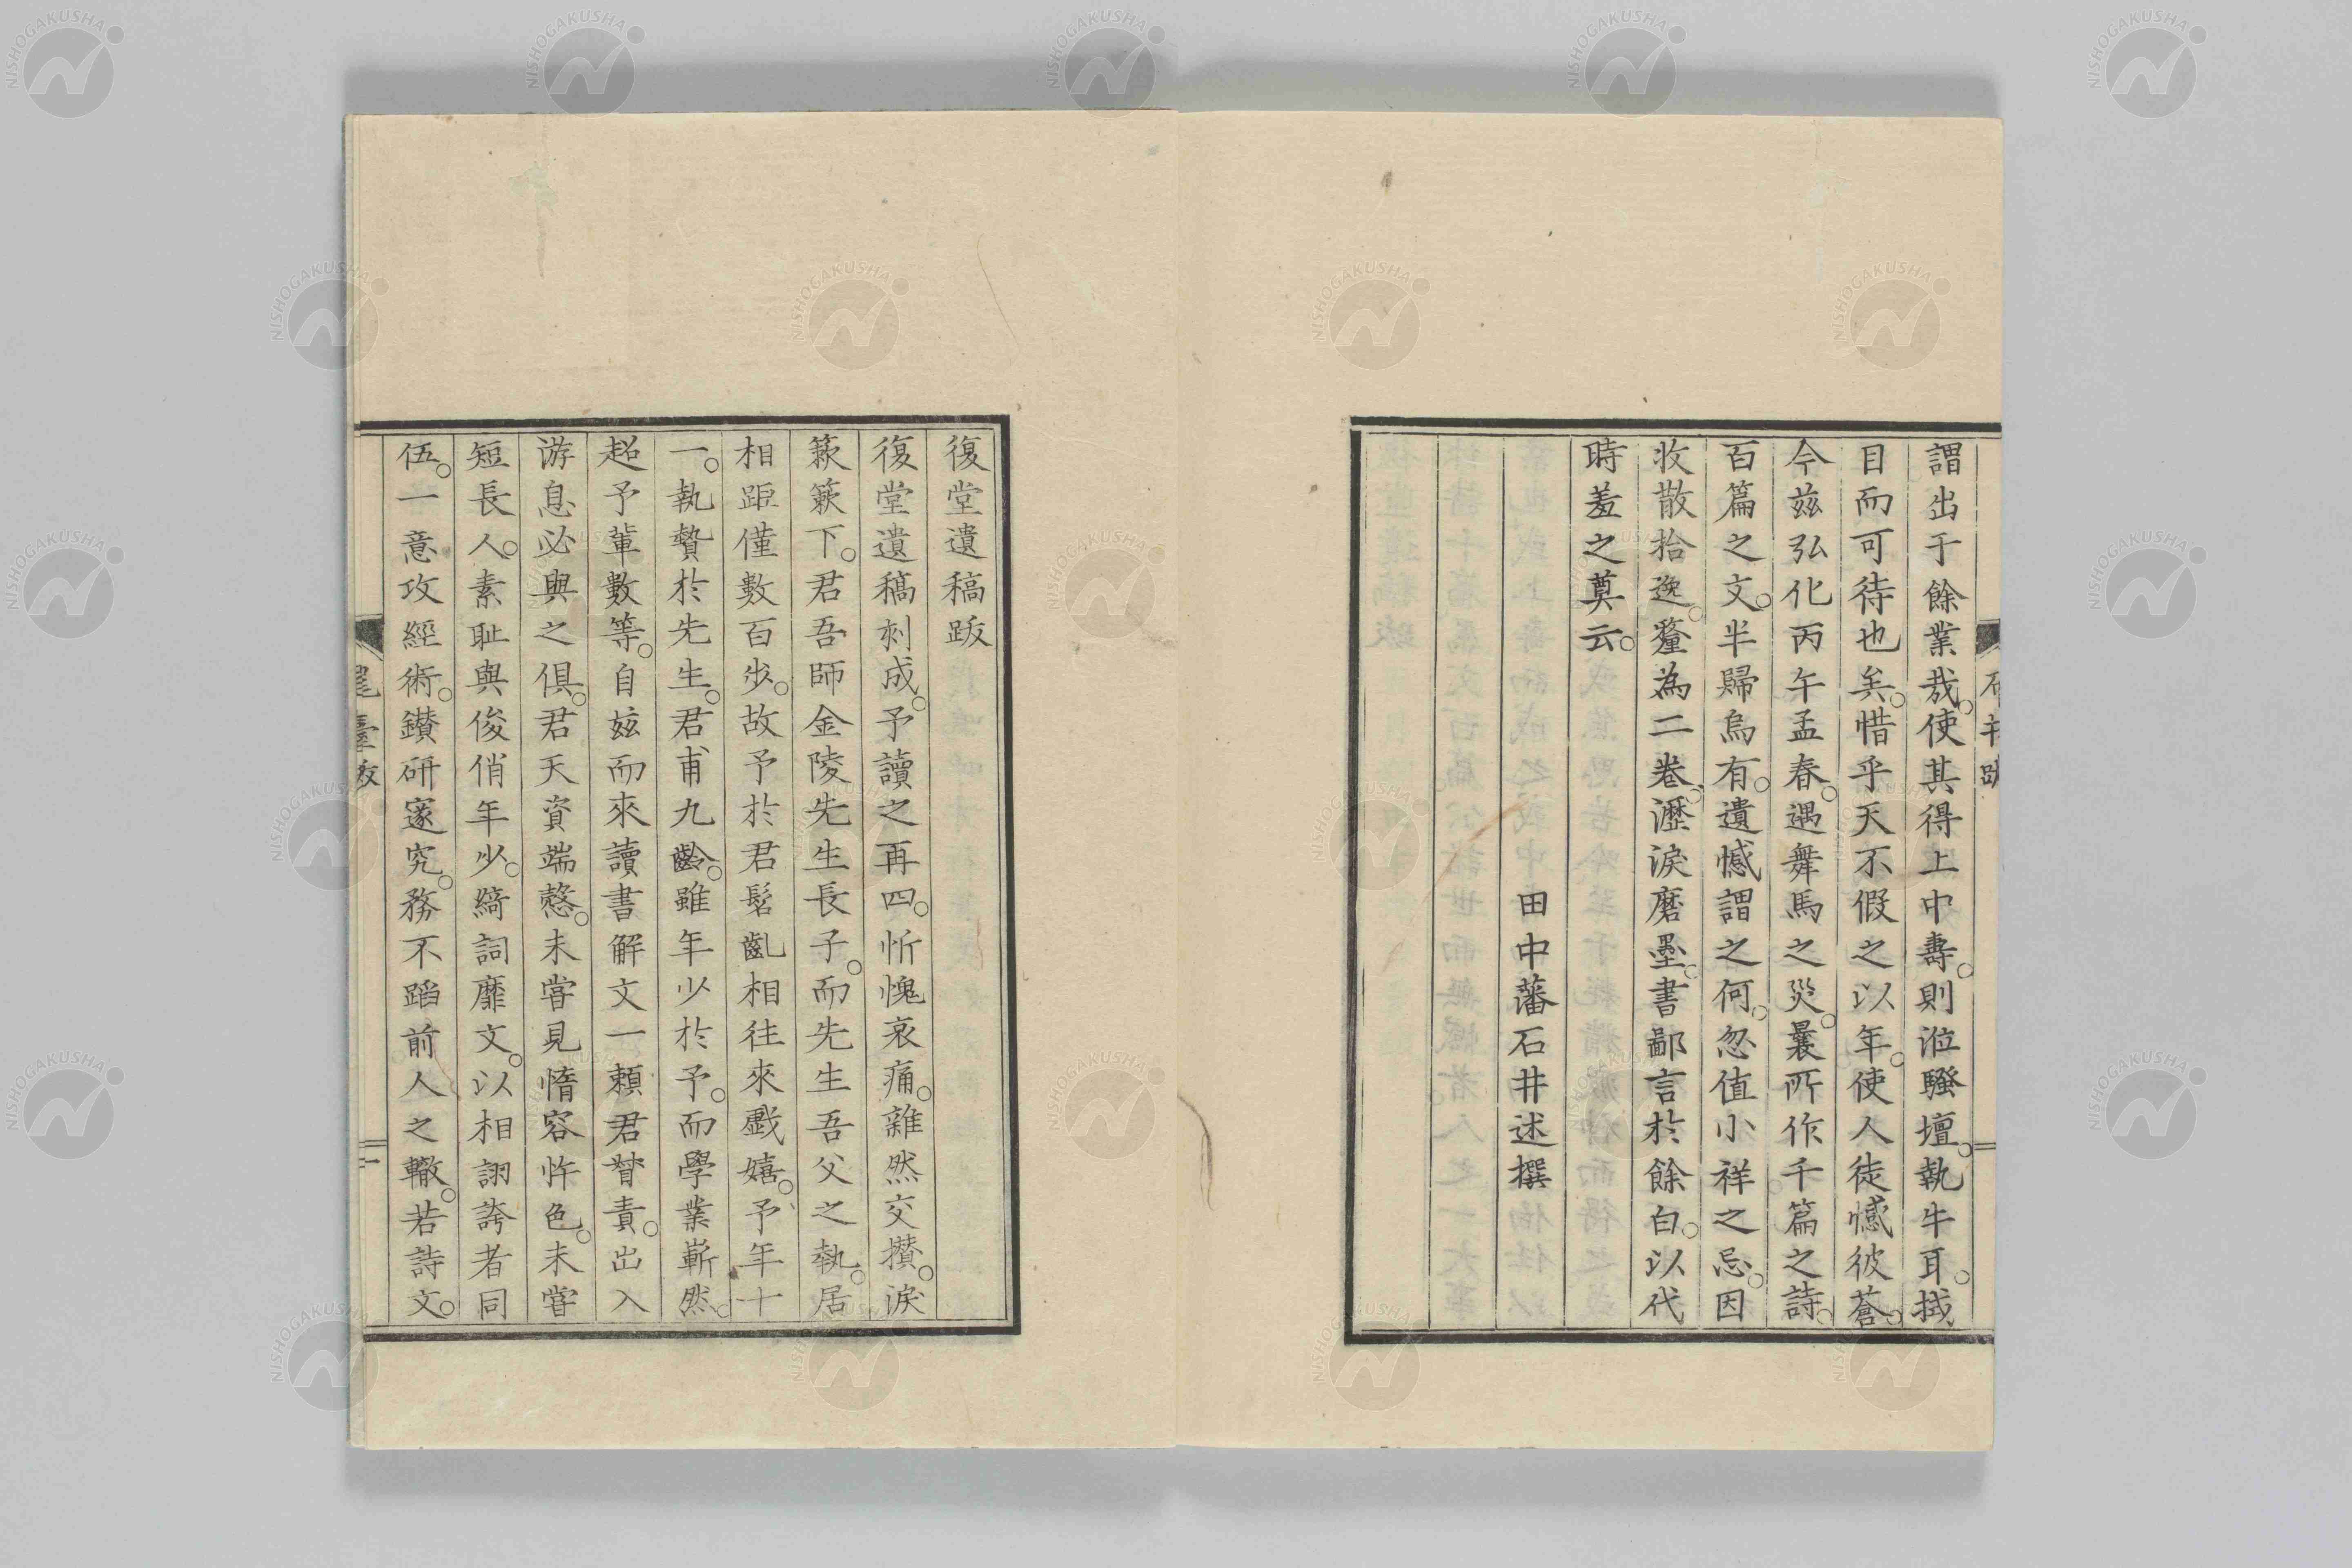 謂出于餘業哉。使其得上中壽。則涖騷壇。執牛耳。拭
目而可待也矣。惜乎天不假之以年。使人徒憾彼蒼。
今茲弘化丙午孟春。遇舞馬之災。曩所作千篇之詩。
百篇之文。半歸烏有。遺憾謂之何。忽值小祥之忌。因
收散拾逸。釐為二卷。瀝淚磨墨。書鄙言於餘白。以代
時羞之奠云。
田中藩石井述撰
復堂遺稿跋
復堂遺稿刻成。予讀之再四。忻愧哀痛。雜然交攢。淚
簌簌下。君吾師金陵先生長子。而先生吾父之執。居
相距僅數百步。故予於君髫齓相往來戲嬉。予年十
一。執贄於先生。君甫九齡。雖年少於予。而學業嶄然。
超予輩數等。自玆而來讀書解文一賴君督責。出入
游息必與之俱。君天資端愨。未嘗見惰容忤色。未嘗
短長人。素耻與俊俏年少。綺詞靡文。以相詡誇者同
伍。一意攻經術。鑚研邃究。務不蹈前人之轍。若詩文。
尾臺跋
NISHOGAKUSHA